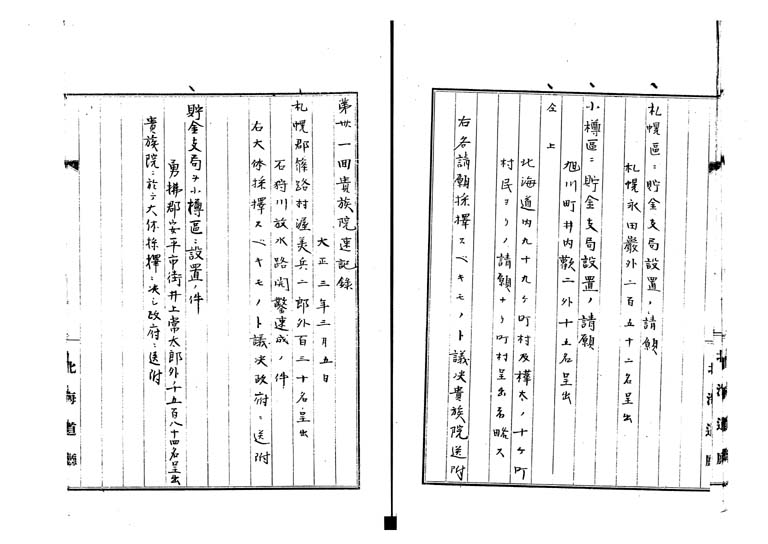 札幌區ニ貯金支局設置ノ請願
札幌永田巖外二百五十二名呈出
小樽區ニ貯金支局設置ノ請願
旭川町井内歡二外十五名呈出
仝上
北海道内九十九ヶ町村及樺太ノ十ヶ町
村民ヨリノ請願ナリ町村呈出名略ス
右各請願採擇スベキモノト議决貴族院送附
北海道廳
第卅一回貴族院速記録
大正三年三月五日
札幌郡篠路村渥美兵二郎外百三十名呈出
石狩川放水路開鑿速成ノ件
右大体採擇スベキモノト議决政府ニ送附
貯金支局ヲ小樽區ニ設置ノ件
勇拂郡安平市街井上常太郎外千五百八十四名呈出
貴族院ニ於テ大体採擇ニ决シ政府ニ送附
北海道廳